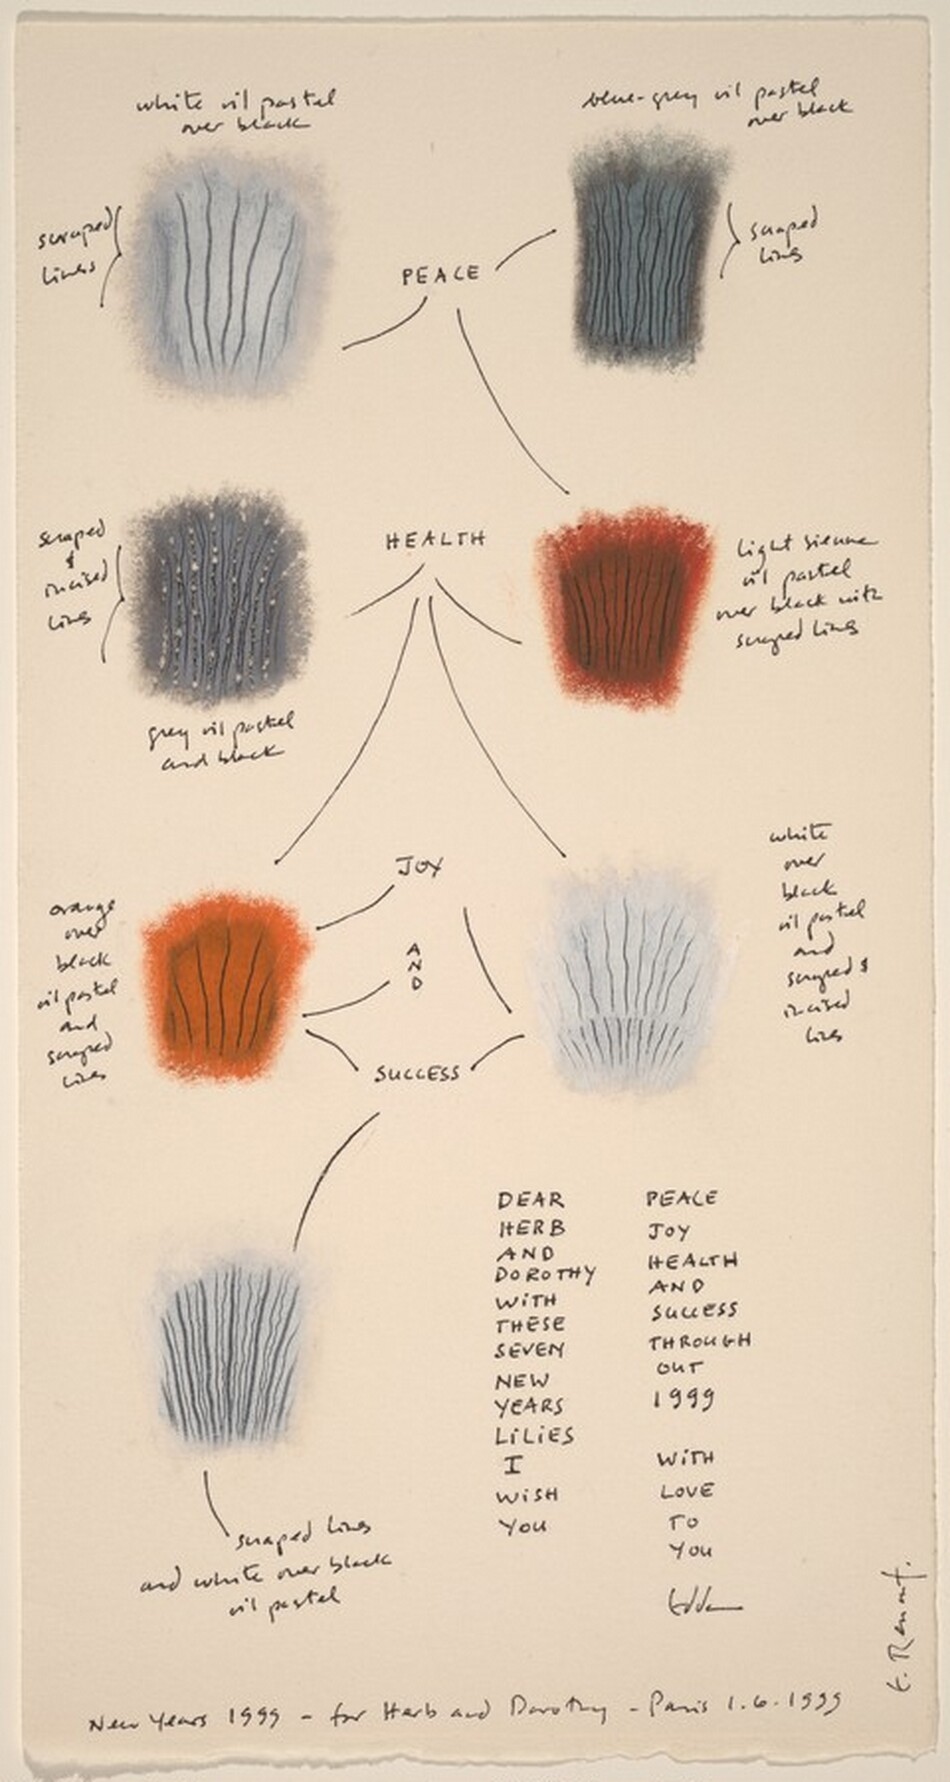 white oil pastel
over black
blue-grey oil pastel
over black
scraped
lines
PEACE
scraped
lines
scraped
&
incised
lines
HEALTH
light sienna
oil pastel
over black with
scraped lines
grey oil pastel
and black
JOY
AND
SUCCESS
orange
over
black
oil pastel
and
scraped
lines
white
over
black
oil pastel
and
scraped &
incised
lines
DEAR
HERB
AND
DOROTHY
WITH
THESE
SEVEN
NEW
YEARS
LILIES
I
WISH
YOU
PEACE
JOY
HEALTH
AND
SUCCESS
THROUGH
OUT
1999
WITH
LOVE
TO
YOU
Edda
scraped lines
and white over black
oil pastel
E. Renouf.
New Years 1999 - for Herb and Dorothy - Paris 1.6.1999